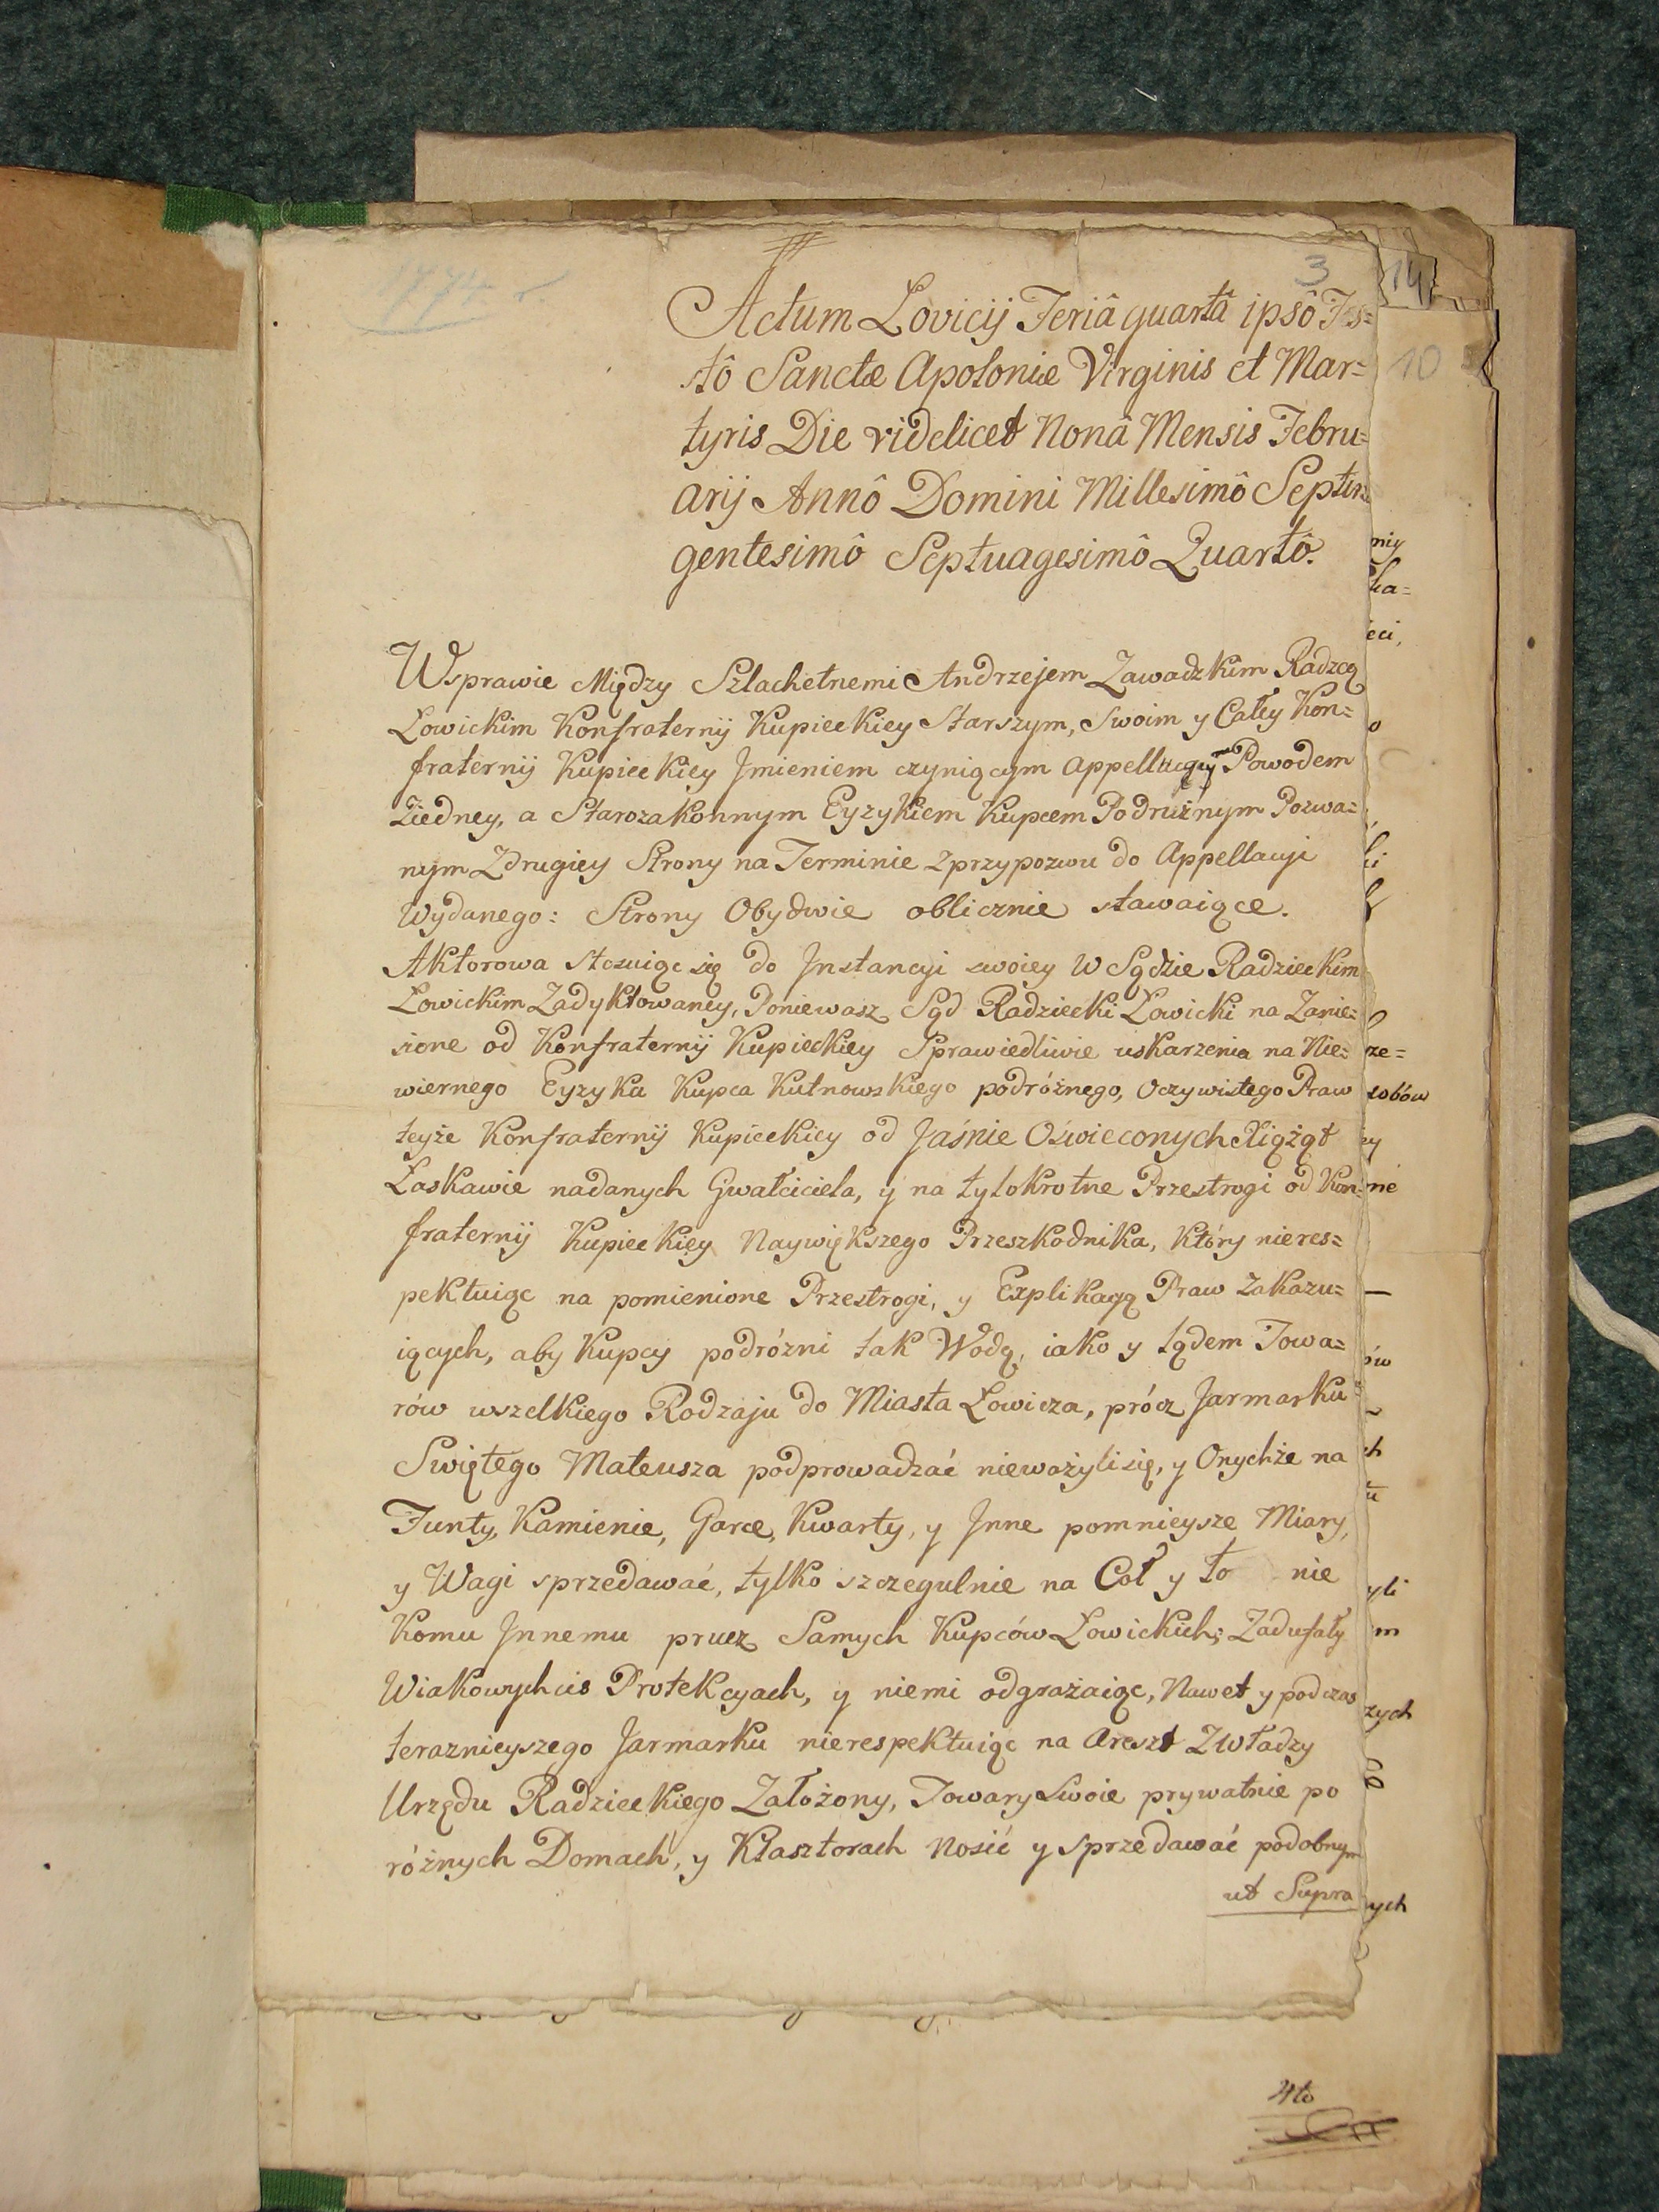 1774 r.
3
14
10
Actum Lovicij Feriâ quartâ ipsô Fes=
stô Sanctæ Apoloniæ Virginis et Mar=
tyris Die videlicet Nonâ Mensis Febru=
arij Annô Domini Millesimô Septin
gentesimô Septuagesimô Quartô.
Wsprawie Między Szlachetnemi Andrzejem Zawadzkim Radzcą
Łowickim Konfraternij Kupieckiey Starszym, Swoim y Całey Kon=
fraternij Kupieckiey Jmieniem czyniącym Powodem
Ziedney, a Starozakonnym Eyzykiem Kupcem Podrużnym Pozwa=
nym Zdrugiey Strony na Terminie z przypozwu do Appellacyi
Wydanego: Strony Obydwie oblicznie stawaiące.
Aktorowa stosuiąc się do Jnstancyi swoiey W Sądzie Radzieckim
Łowickim Zadyktowaney, Poniewasz Sąd Radziecki Łowicki na Zanie=
sione od Konfraternij Kupieckiey Sprawiedliwie uskarzenia na Nie=
wiernego Eyzyka Kupca Kutnowskiego podróżnego, Oczywistego Praw
teyże Konfraternij Kupieckiey od Jaśnie Oświeconych Xiążąt
Łaskawie nadanych Gwałciciela, y na tylokrotne Przestrogi od Kon=
fraternij Kupieckiey Naywiększego Przeszkodnika, który nieres=
pektuiąc na pomienione Przestrogi, y Explikacyą Praw zakazu=
iących, aby Kupcy podrózni tak Wodą, iako y lądem Towa=
rów wszelkiego Rodzaju do Miasta Łowicza, prócz Jarmarku
Swiętego Mateusza podprowadzać nieważyli się, y Onychże na
Funty, Kamienie, Garce, Kwarty, y Jnne pomnieysze Miary,
y Wagi sprzedawać, tylko szczegulnie na Coł y to nie
Komu Jnnemu prucz Samych Kupców Łowickich; Zadufały
Wiakowychcis Protekcyach, y niemi odgrażaiąc, Nawet y podczas
teraznieyszego Jarmarku nierespektuiąc na Areszt Zwładzy
Urzędu Radzieckiego Założony, Towary Swoie prywatnie po
różnych Domach, y Klasztorach Nosić y sprzedawać podobnym
ut Supra
4to